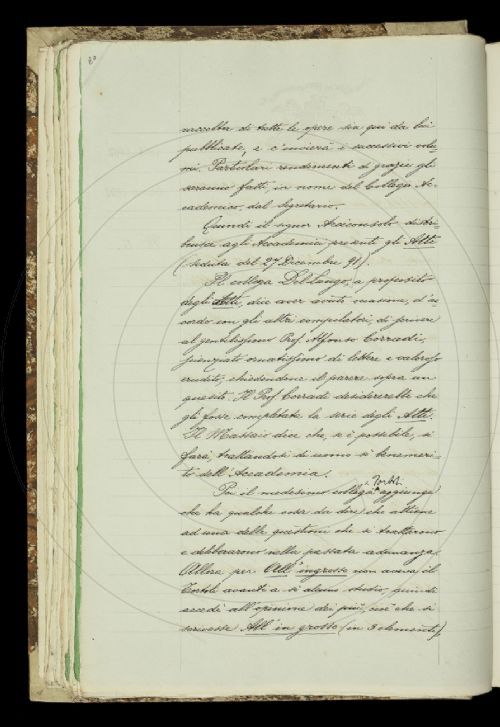 80
raccolta di tutte le opere sin qui da lui
pubblicate, e c'invierà i successivi volu-
mi. Particolari rendimenti di grazie gli
saranno fatti, in nome del Collegio Ac-
cademico, dal Segretario.
Quindi il signor Arciconsolo distri-
buisce agli Accademici presenti gli Atti
(seduta del 27 Dicembre 91).
Il collega Del Lungo, a proposito
degli Atti, dice aver avuto occasione, d'ac-
cordo con gli altri compilatori, di scrivere
al gentilissimo Prof. Alfonso Corradi,
scienziato ornatissimo di lettere e valoroso
erudito, chiedendone il parere sopra un
quesito. Il Prof. Corradi desidererebbe che
gli fosse completata la serie degli Atti.
Il Massaio dice che, se è possibile, si
farà, trattandosi di uomo sì benemeri-
to dell'Accademia.
Poi il medesimo collega Tortoli aggiunge
che ha qualche cosa da dire, che attiene
ad una delle questioni che si trattarono
e deliberarono nella passata adunanza.
Allora per All'ingrosso non aveva il
Tortoli avanti a sé alcuno studio, quindi
accedé all'opinione dei più, cioè che si
scrivesse All'in grosso (in 3 elementi),